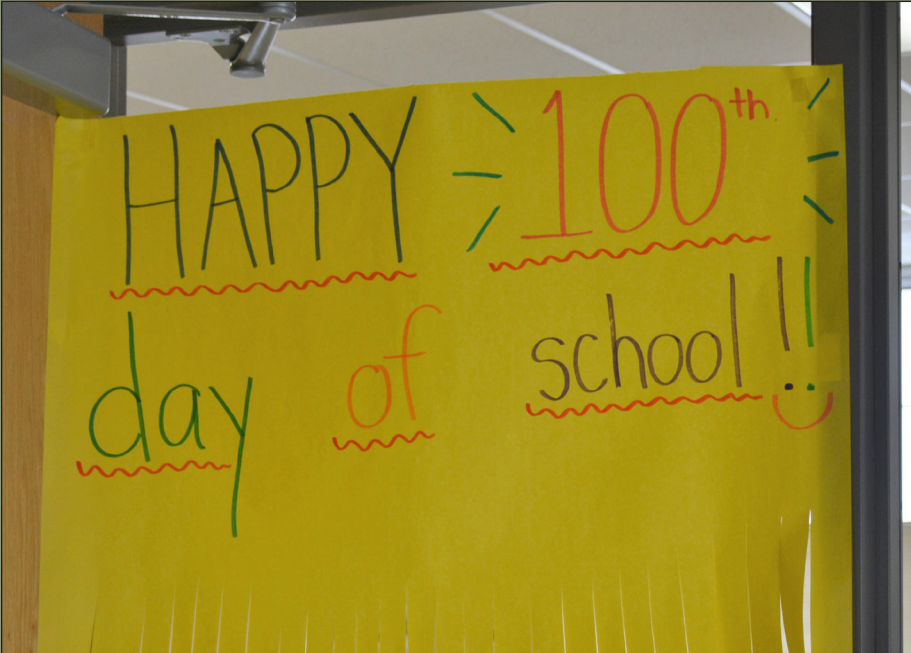 HAPPY 100th
day of school!!